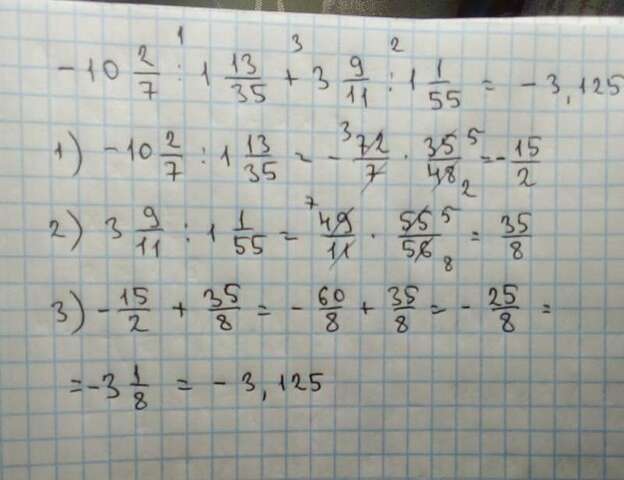 -10 2/7 : 1 13/35 + 3 9/11 : 1 1/55 = -3,125
1) -10 2/7 : 1 13/35 = - 72/7 · 35/48 = - 15/2
2) 3 9/11 : 1 1/55 = 49/11 · 55/56 = 35/8
3) - 15/2 + 35/8 = - 60/8 + 35/8 = - 25/8 =
= -3 1/8 = -3,125